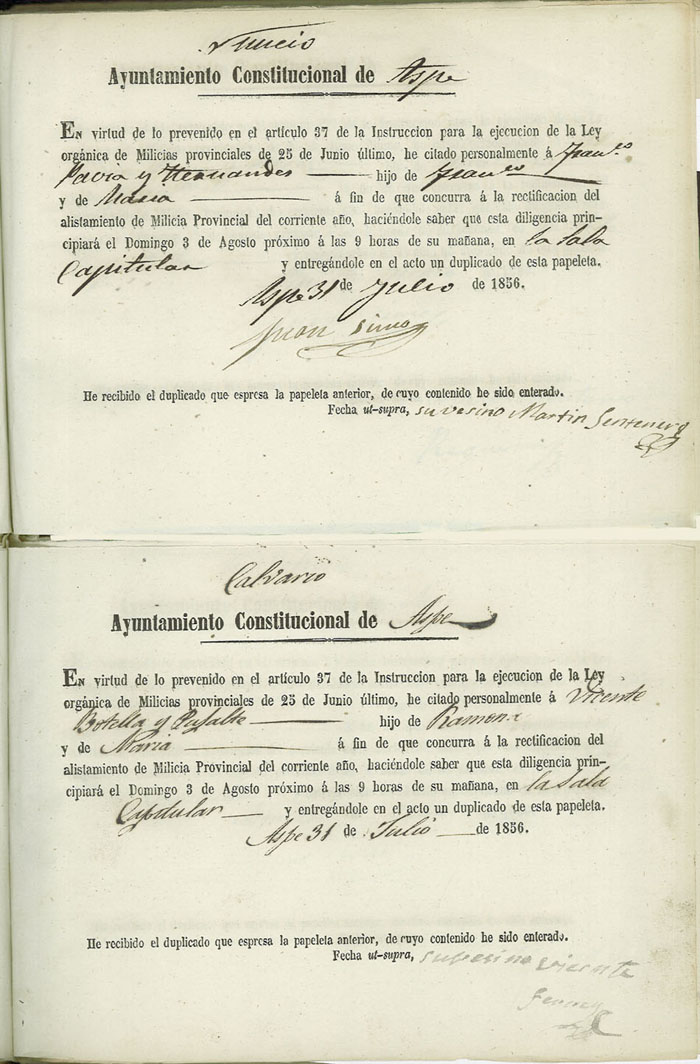 Ayuntamiento Constitucional de Aspe
EN virtud de lo prevenido en el artículo 37 de la Instruccion para la ejecucion de la Ley
orgánica de Milicias provinciales de 25 de Junio último, he citado personalmente á Fran.co
y Hernandes hijo de Fran.co
y de Maria á fin de que concurra á la rectificacion del
alistamiento de Milicia Provincial del corriente año, haciéndole saber que esta diligencia prin-
cipiará el Domingo 3 de Agosto próximo á las 9 horas de su mañana, en la Sala
Capitular y entregándole en el acto un duplicado de esta papeleta.
Aspe 31 de Julio de 1856.
Juan Simon
He recibido el duplicado que espresa la papeleta anterior, de cuyo contenido he sido enterado.
Fecha ut-supra, su vesino Martin
Calvario
Ayuntamiento Constitucional de Aspe
EN virtud de lo prevenido en el artículo 37 de la Instruccion para la ejecucion de la Ley
orgánica de Milicias provinciales de 25 de Junio último, he citado personalmente á Vicente
Botella y hijo de Ramona
y de Maria á fin de que concurra á la rectificacion del
alistamiento de Milicia Provincial del corriente año, haciéndole saber que esta diligencia prin-
cipiará el Domingo 3 de Agosto próximo á las 9 horas de su mañana, en la Sala
Capitular y entregándole en el acto un duplicado de esta papeleta.
Aspe 31 de Julio de 1856.
He recibido el duplicado que espresa la papeleta anterior, de cuyo contenido he sido enterado.
Fecha ut-supra, su vesino vicente